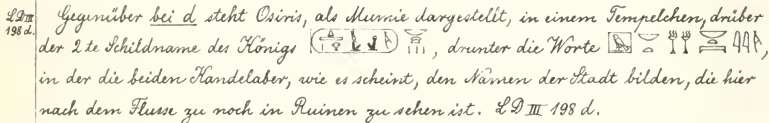 LD III Gegenüber bei d steht Osiris, als Mumie dargestellt, in einem Tempelchen, drüber
198 d. der 2te Schildname des Königs , drunter die Worte
in der die beiden Kandelaber, wie es scheint, den Namen der Stadt bilden, die hier
nach dem Flusse zu noch in Ruinen zu sehen ist. LD III 198 d.